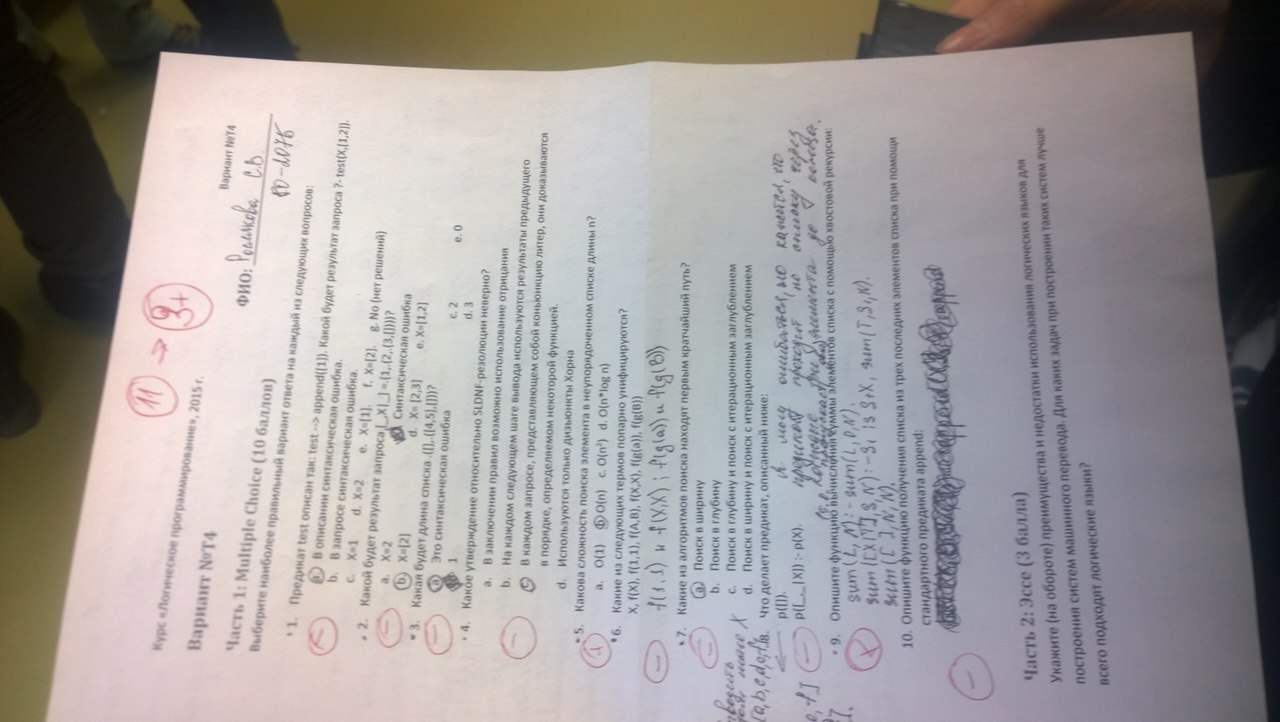 11 → 3+
Курс «Логическое программирование», 2015 г.
Вариант №T4
Вариант №T4
ФИО: С.В.
80-207Б
Часть 1: Multiple Choice (10 баллов)
Выберите наиболее правильный вариант ответа на каждый из следующих вопросов:
1. Предикат test описан так: test --> append([1]). Какой будет результат запроса ?- test(X,[1,2]).
a. В описании синтаксическая ошибка.
b. В запросе синтаксическая ошибка.
c. X=1 d. X=2 e. X=[1]. f. X=[2]. g. No (нет решений)
2. Какой будет результат запроса [_,X|_] =.(1,.(2,.(3,[])))?
a. X=2 Синтаксическая ошибка
b. X=[2] d. X= [2,3] e. X=[1,2]
3. Какая будет длина списка .([],.([4,5],[]))?
a Это синтаксическая ошибка c. 2 e. 0
1 d. 3
4. Какое утверждение относительно SLDNF-резолюции неверно?
a. В заключении правил возможно использование отрицания
b. На каждом следующем шаге вывода используются результаты предыдущего
c В каждом запросе, представляющем собой конъюнкцию литер, они доказываются
в порядке, определяемом некоторой функцией.
d. Используются только дизъюнкты Хорна
5. Какова сложность поиска элемента в неупорядоченном списке длины n?
a. O(1) b O(n) c. O(n²) d. O(n*log n)
6. Какие из следующих термов попарно унифицируются?
X, f(X), f(1,1), f(A,B), f(X,X), f(g(a)), f(g(B))
f(1,1) и f(X,X) ; f(g(a)) и f(g(B))
7. Какие из алгоритмов поиска находят первым кратчайший путь?
a Поиск в ширину
b. Поиск в глубину
c. Поиск в глубину и поиск с итерационным заглублением
d. Поиск в ширину и поиск с итерационным заглублением
X
[a,b,c,d,e,f]
8. Что делает предикат, описанный ниже:
p([]). Я могу ошибаться, но кажется, что
p([_,_|X]) :- p(X). предикат проходит по списку через
каждые три элемента до конца.
9. Опишите функцию вычисления суммы элементов списка с помощью хвостовой рекурсии:
sum(L, N):- sum(L,0,N).
sum([X|T],S,N):-S₁ is S+X, sum(T,S₁,N).
sum([ ],N,N).
10. Опишите функцию получения списка из трех последних элементов списка при помощи
стандартного предиката append:
Часть 2: Эссе (3 балла)
Укажите (на обороте) преимущества и недостатки использования логических языков для
построения систем машинного перевода. Для каких задач при построении таких систем лучше
всего подходят логические языки?